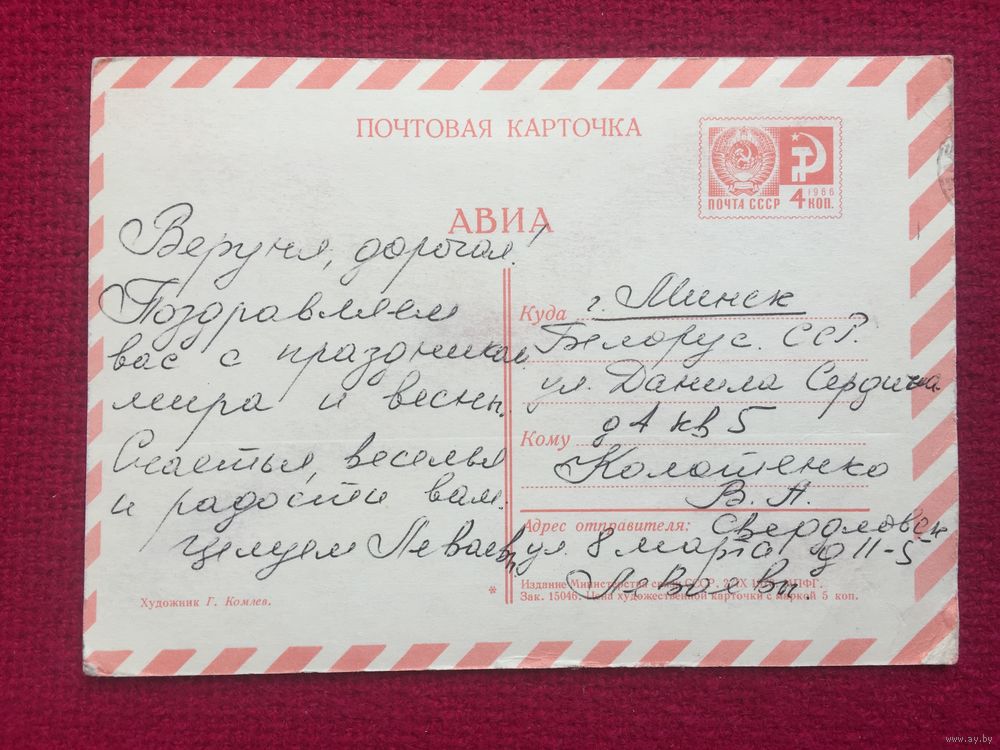 ПОЧТОВАЯ КАРТОЧКА
АВИА
1966
ПОЧТА СССР 4 КОП.
Веруня, дорогая!
Поздравляем
вас с праздником
мира и весны.
Счастья, веселья
и радости вам.
Целуем
Куда г. Минск
Белорус. ССР.
ул. Данила Сердича
д 4 кв 5
Кому Колотенко
В. А.
Адрес отправителя: Свердловск
ул. 8 марта д 11-5
Издание Министерства связи СССР.
Зак. 15046. Цена художественной карточки с маркой 5 коп.
*
Художник Г. Комлев.
www.ay.by